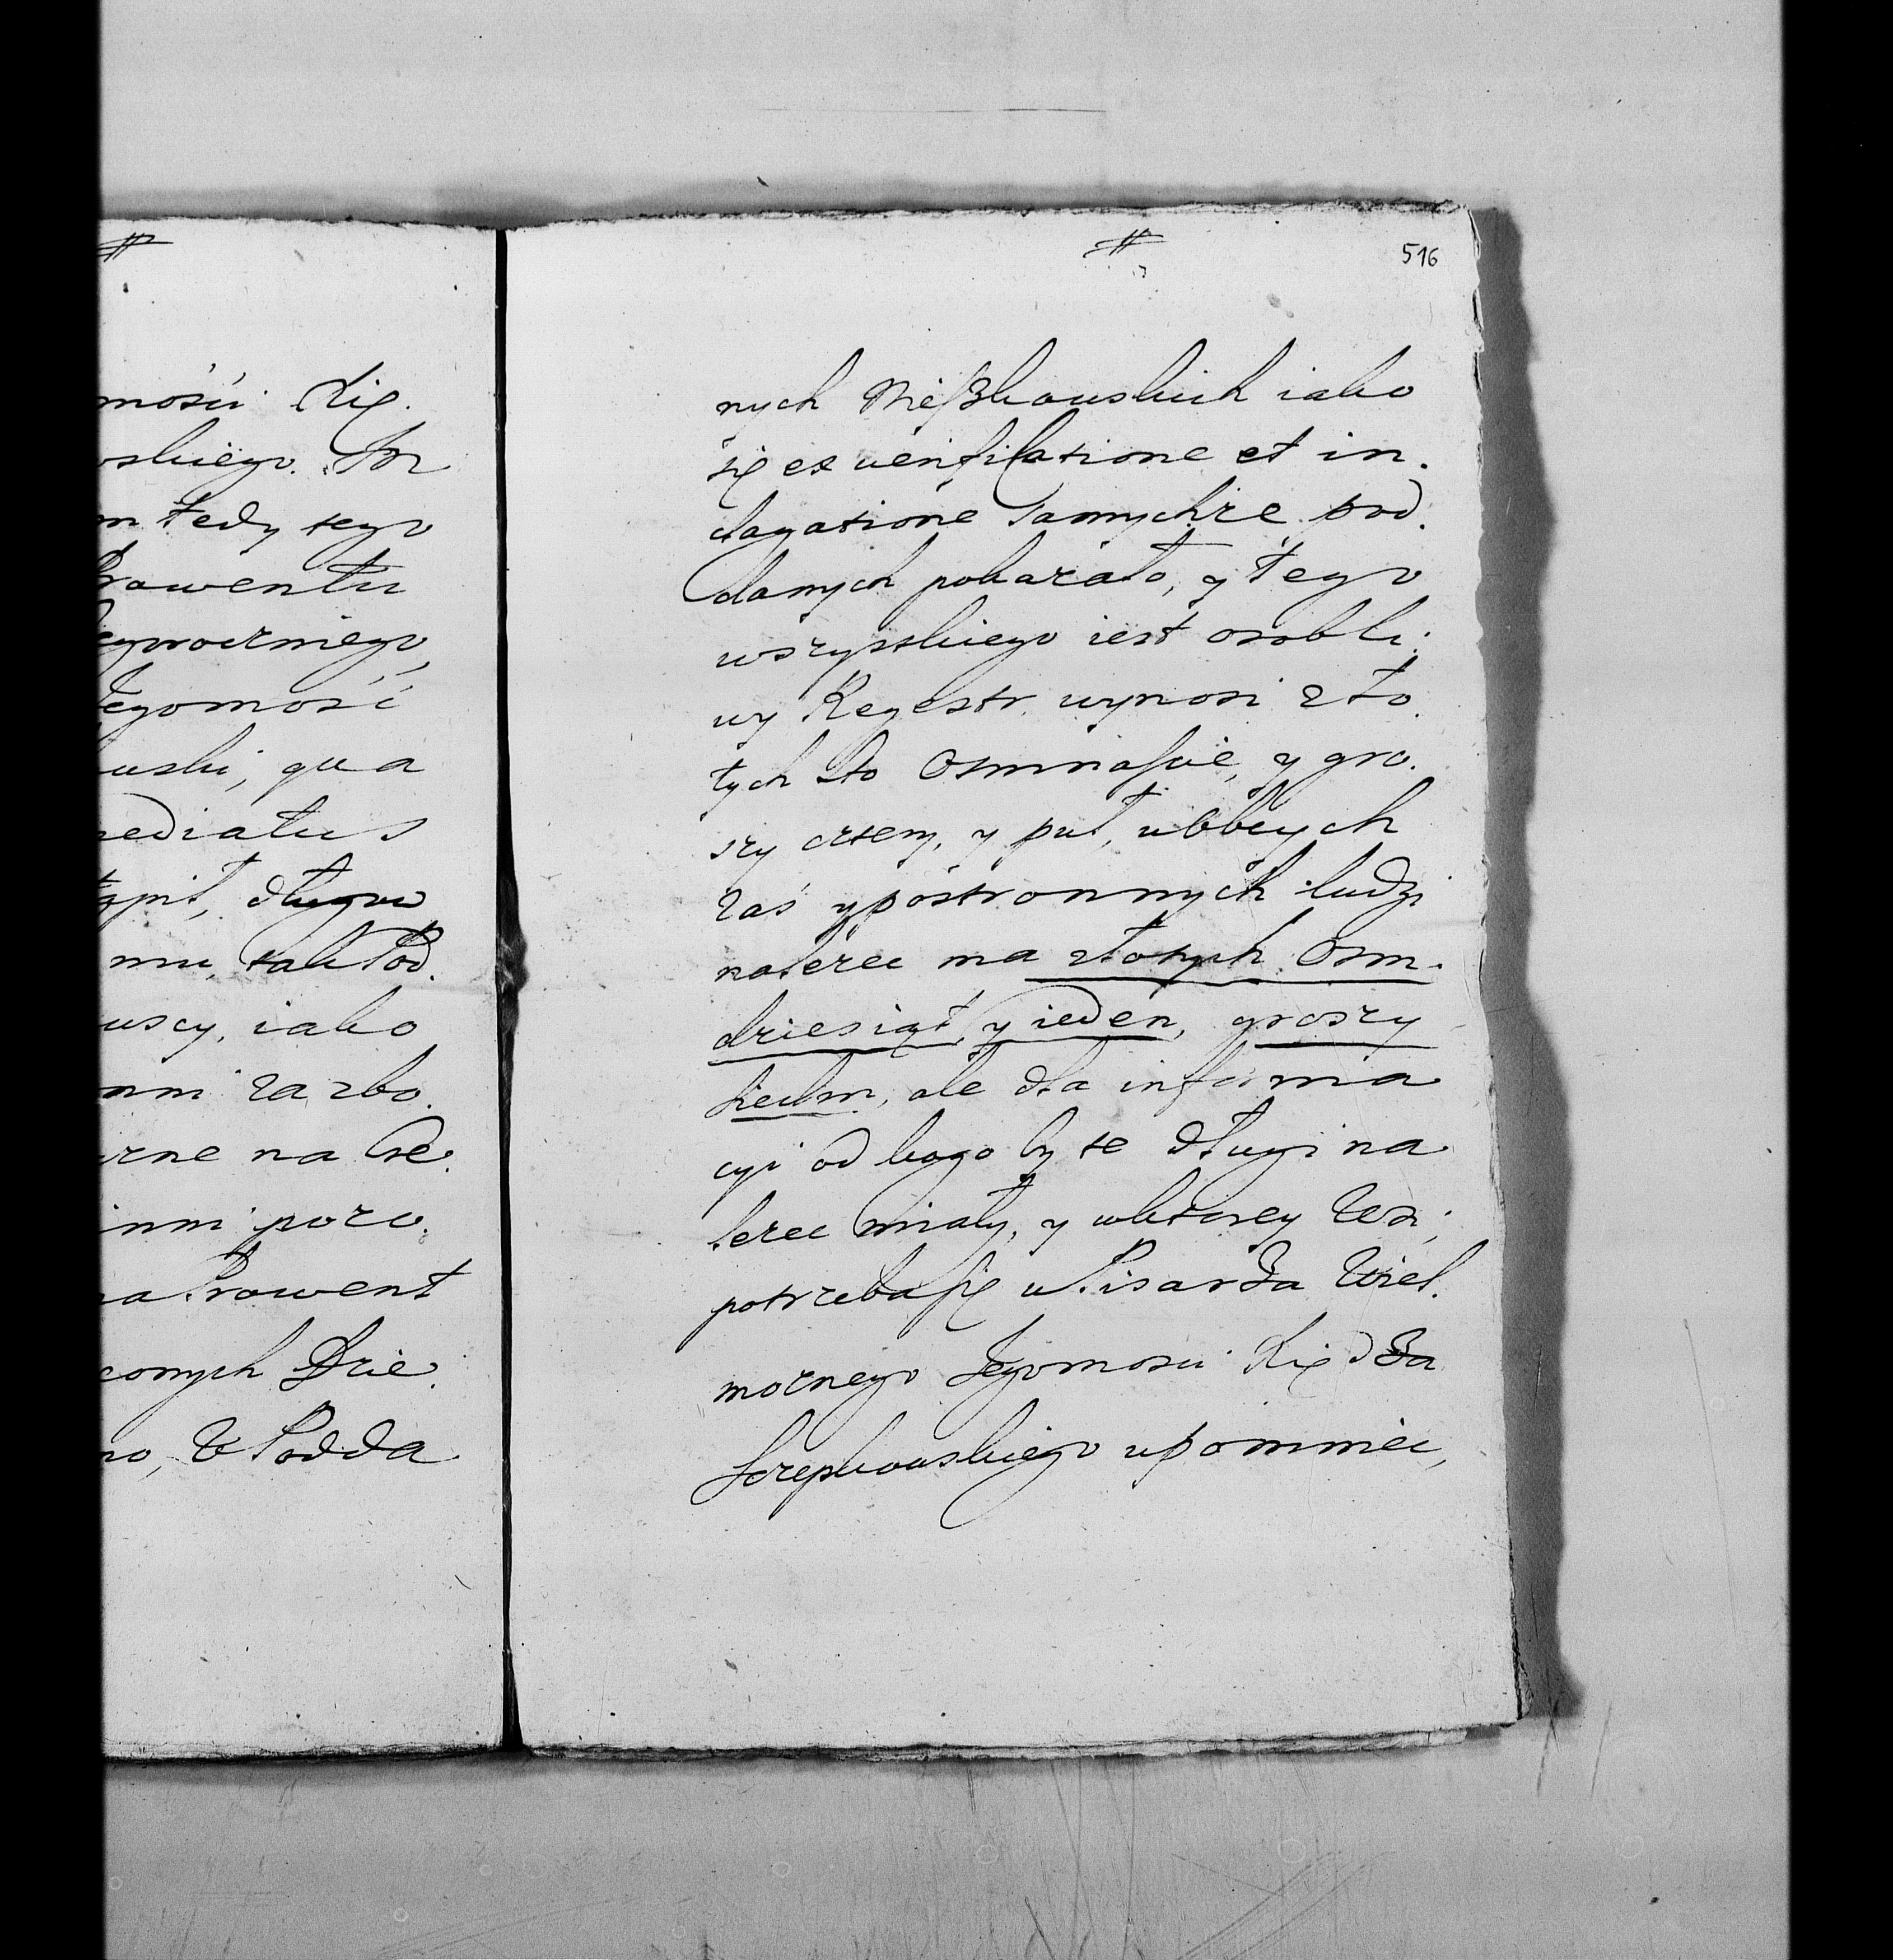 #
mości Xię
skiego. Po
m tedy tego
Prowentu
Jegomość
uski, qua
mediatus
tąpił, długow
mu, tak Pod.
uscy, iako
nni za zbo.
rne na
inni pozo.
na Prowent
conych Dzie.
no, w Podda
#
516
nych Mieszkowskich iako
się ex verificatione et in.
dagatione samychże pod.
danych pokazało, y tego
wszystkiego iest osobli.
wy Regestr wynosi zło.
tych sto Osmnaście, y gro.
szy cztery, y puł, ubbcych
zaś y postronnych ludzi
należec ma złotych Osm.
dziesiąt, y ieden, groszy
siedm, ale dla informa
cyi od kogo by te długi na
lezec miały, y w ktorey Wsi;
potrzeba się u Pisarza Wiel.
możnego Jegomosci Xiędza
Szczepkowskiego upomniec,